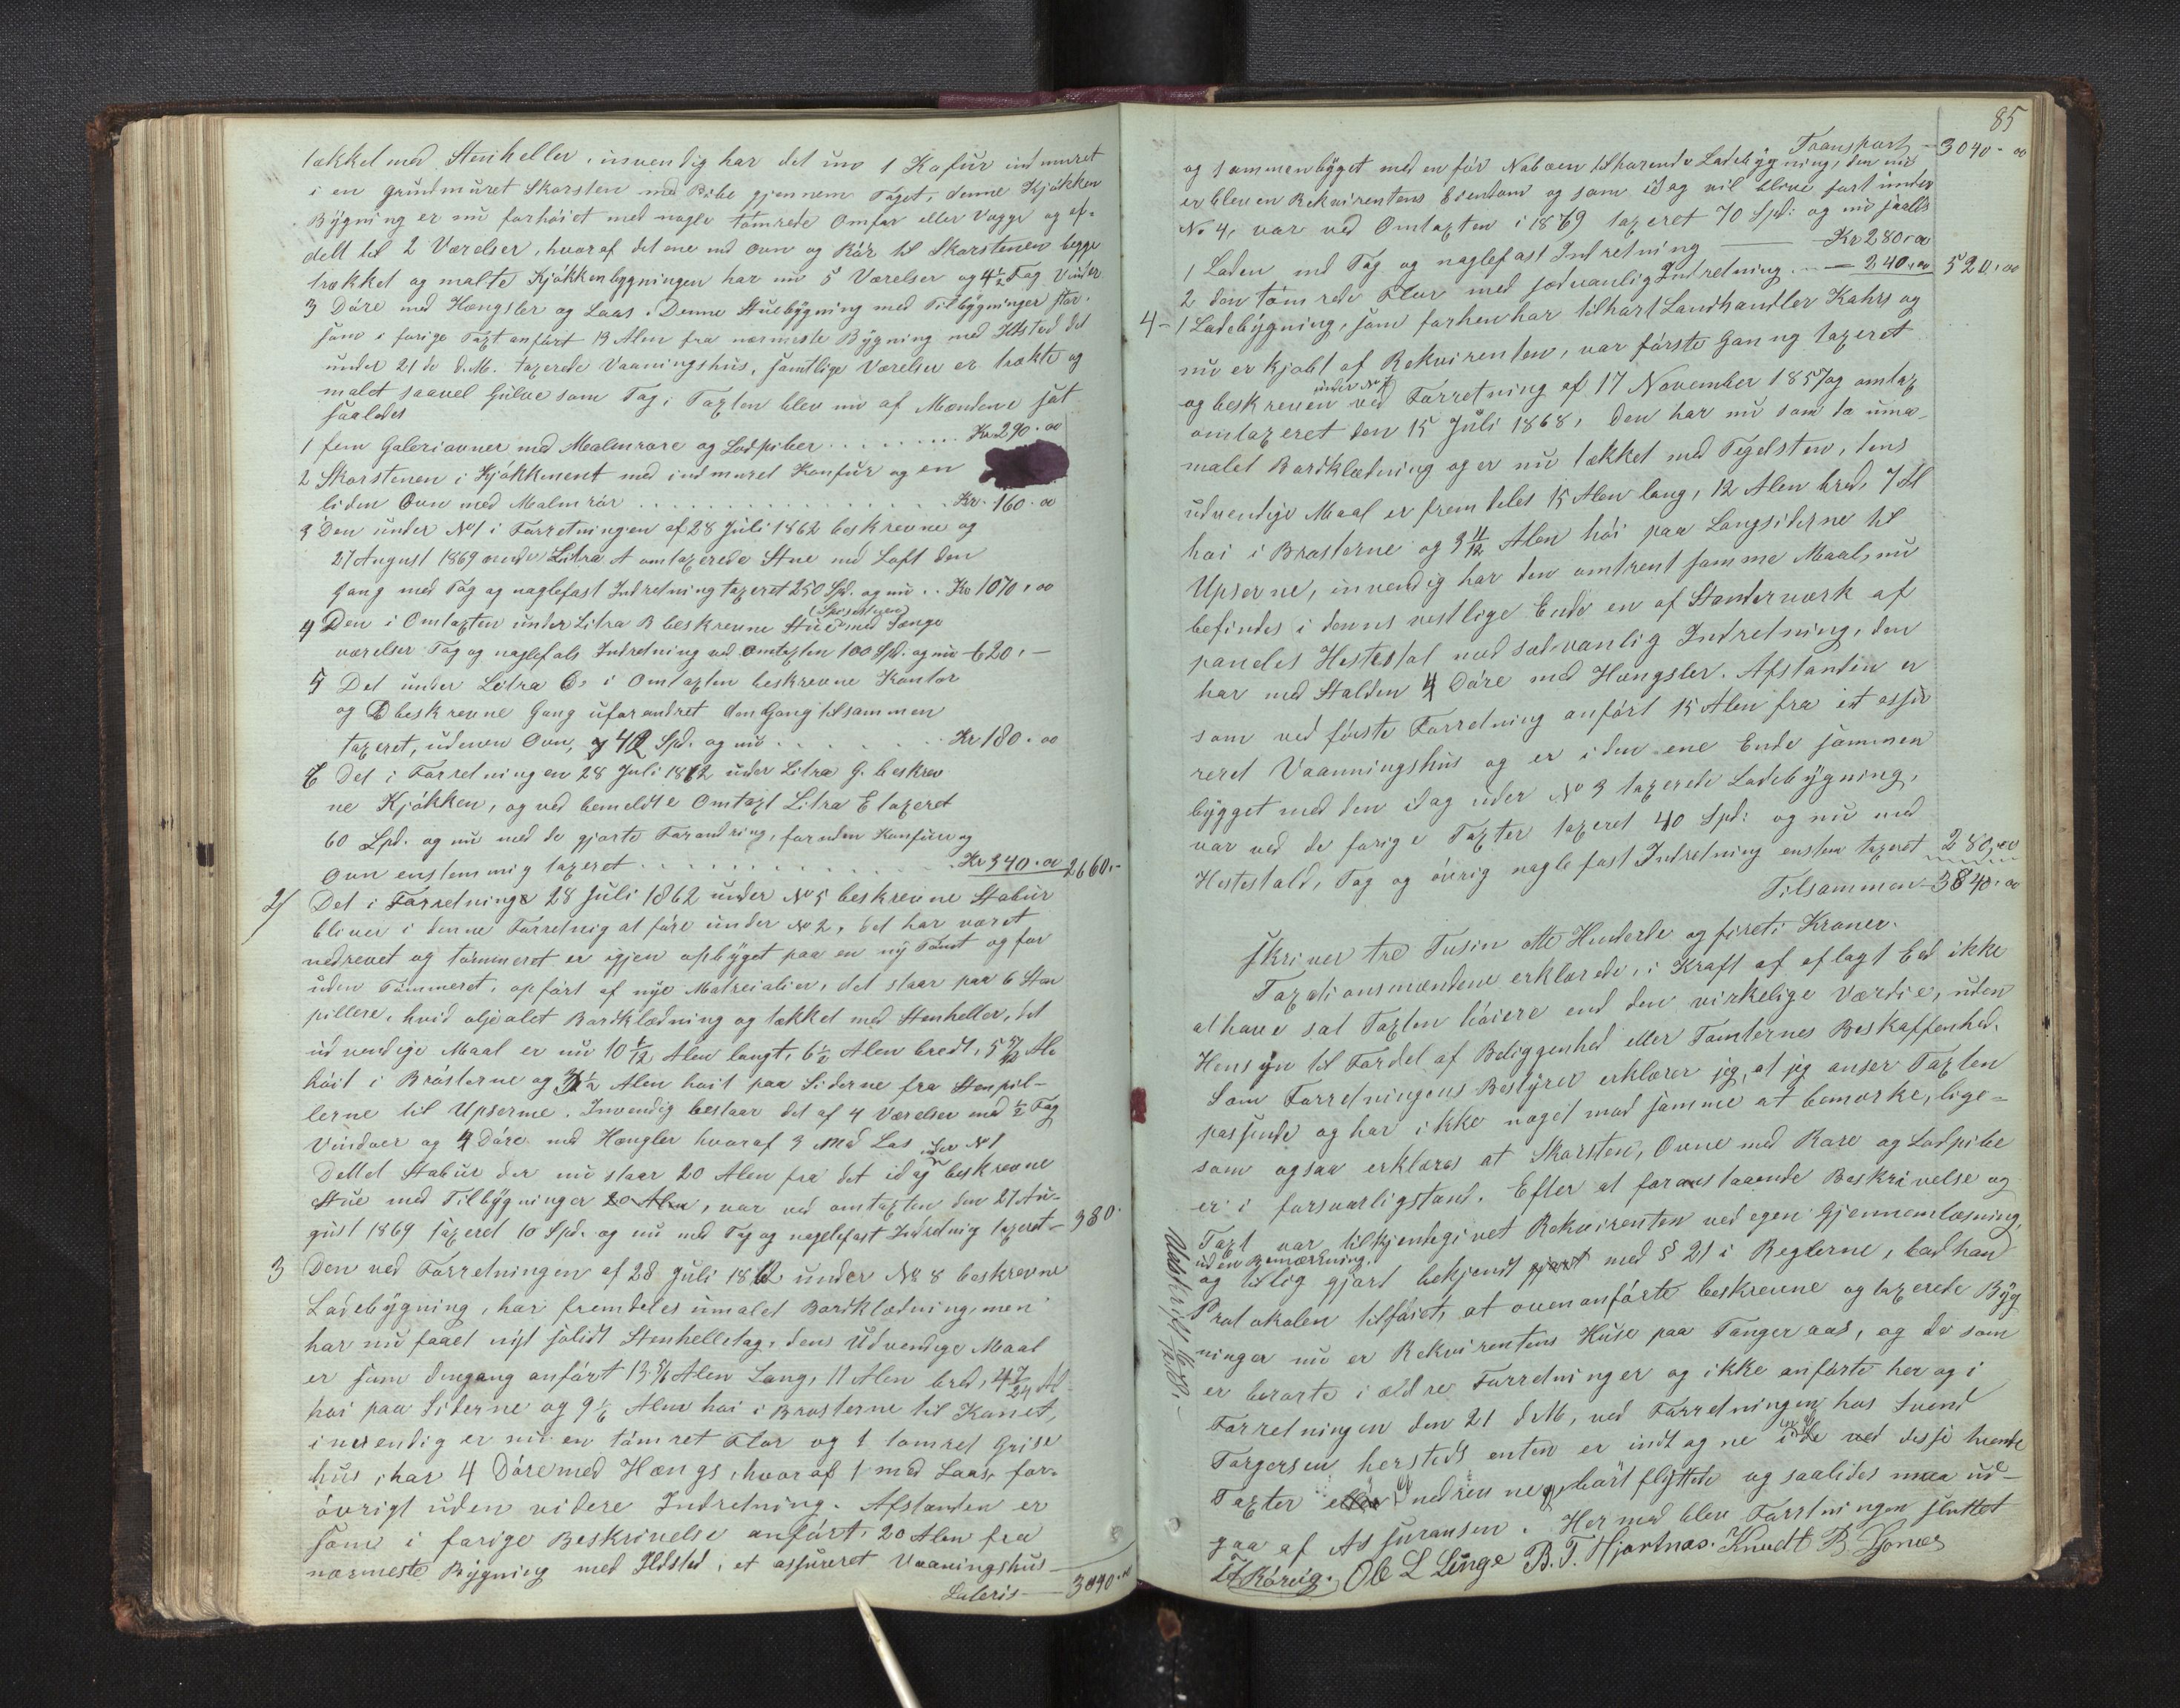 tækket med Stenheller, invendig har det une 1 Kafür indmuret
i en grundmuret Skorsten med Pibe gjennem Taget, denne Kjøkken
Bygning er nu forhøiet med nogle tømrede Omfar eller Vægge og af-
delt til 2 Værelser, hvoraf det ene med Ovn og Rør til Skorstenen begge
trækket og malte Kjøkkenbygningen har nu 5 Værelser og 4½ Fag Vinder
3 Døre med Hængsler og Laas. Denne Stuebygning med Tilbygninger staar
som i forige Taxt anført 13 Alen fra nærmeste Bygning med Ildsted det
under 21de d.M. taxerede Vaaningshus, samtlige Værelser er trækte og
malet saavel Gulve som Tag. Taxten blev nu af Mændene sat
saaledes
1 fem Galeriovner med Malmrøre og Lodpiber . . . . . . . . Kr 290.00
2 Skorstenen i Kjøkkenet med indmuret Konfur og en
liden Ovn med Malmrør . . . . . . . . . . Kr. 160.00
3 Den under No 1 i Forretningen af 28 Juli 1862 beskrevne og
27 August 1869 under Litra A omtaxerede Stue med Loft den
gang med Tag og naglefast Indretning taxeret 250 Spd. og nu . . Kr 1070.00
4 Den i Omtaxten under Litra B beskrevne Stue med Senge
værelser Tag og naglefals Indretning ved Omtaxten 100 Spd. og nu 620.-
5 Det under Litra C i Omtaxten beskrevne Kontor
og D beskrevne Gang uforandret den Gang tilsammen
taxeret, udenen Ovn, 42 Spd. og nu . . . . . . . Kr 180.00
6 Det i Forretningen 28 Juli 1862 under Litra G. beskrev
ne Kjøkken, og ved bemeldte Omtaxt Litra E taxeret
60 Spd. og nu med de gjorte Forandring, foruden Konfur og
Ovn enstemmig taxeret . . . . . . . . . . . Kr 340.00 2660.-
2/ Det i Forretninge 28 Juli 1862 under No 5 beskrevne Stabur
bliver i denne Forretnig at føre under No 2, det har været
nedrevet og tømmeret er igjen opbygget paa en ny Tomt og for
uden Tømmeret, opført af nye Matreialier, det staar paa 6 Sten
pillere, hvid oljealet Bordklædning og tækket med Stenheller, det
udvendige Maal er nu 10 5/12 Alen langt, 6½ Alen bredt, 5 5/12 Al
høit i Brøsterne og 3½ Alen høit paa Siderne fra Stenpil-
lerne til Upserne. Invendig bestaar det af 4 Værelser med ½ Fag
Vinduer og 4 Døre med Hængler hvoraf 3 Med Las
under No 1
Dettet Stabur der nu staar 20 Alen fra det idag beskrevne
Stue med Tilbygninger 20 Alen, var ved omtaxten den 27 Au-
gust 1869 taxeret 10 Spd. og nu med Tag og naglefast Indretnig taxeret - 380.
3 Den ved Forretningen af 28 Juli 1862 under No 8 beskrevne
Ladebygning, har fremdeles umalet Bordklædning, men
har nu faaet nyt solidt Stenhelletag, dens Udvendige Maal
er som dengang anført 13 5/6 Alen Lang, 11 Alen bred, 4 7/24 Al
høi paa Siderne og 9 1/6 Alen høi i Brøsterne til Kanet,
invendig er nu en tømret Flor og 1 tomret Grise
hus, har 4 Døre med Hængs, hvoraf 1 med Laas, for-
øvrigt uden videre Indretning. Afstanden er
som i forige Beskrivelse anført, 20 Alen fra
nærmeste Bygning med Ildsted, et assureret Vaaningshus
Lateris - 3040.00
85
Transport - 3040-00
og sammenbygget med en før Naboen tilhørende Ladebygning, den nu
er bleven Rekvirentens Eiendom og som idag vil blive ført under
No 4, var ved Omtaxten i 1869 taxeret 70 Spd: og nu saalds
1 Laden med Tag og naglefast Indretning - Kr 280.00
2 den tømrede Flor med sedvanlig Indretning . - 240.00 520.00
4- 1 Ladebygning, som forhen har tilhørt Landhandler Kahrs og
nu er kjøbt af Rekvirenten, var første Ganng taxeret
under No 7
og beskreven ved Forretning af 17 November 1857 og omtax
omtaxeret den 15 Juli 1868, den har nu som da uma-
malet Bordklædning og er nu tækket med Tegelsten, dens
udvendige Maal er fremdeles 15 Alen lang, 12 Alen bred, 7 Al
høi i Brøsterne og 3 11/12 Alen høi paa Langsiderne til
Upserne, invendig har den omtrent samme Maal, nu
befindes i denns vestlige Ende en af Stenderværk af
pandes Hestestal med sædvanlig Indretning, den
har med Stalden 4 Døre med Hængsler. Afstanden er
som ved første Forretning anført 15 Alen fra et assü
reret Vaanningshus og er i den ene Ende sammen
bygget med den idag under No 3 taxerede Ladebygning,
var ved de forige Taxter taxeret 40 Spd: og nu med
Hestestald, Tag og øvrig nagle fast Indretning enstem taxeret 280,00
Tilsammen - 3840.00
skriver tre Tusin otte Hunderde og firti Kroner.
Taxationsmændene erklærede, i Kraft af aflagt Eed ikke
at have sat Taxten høiere end den virkelige Værdie, uden
Hensyn til Fordel af Beliggenhed eller Tomternes Beskaffenhed.
Som Forretningens Bestyrer erklærer jeg, at jeg anser Taxten
passende og har ikke noget mod samme at bemærke, lige-
som ogsaa erklæres at Skorsten, Ovne med Røre og Lodpibe
er i forsvarligstand. Efter at foranstaaende Beskrivelse og
Taxt var tilkjendegivet Rekvirenten ved egen Gjennemlæsning,
uden Bemærkning.
og tillig gjort bekjendt gjort med § 21 i Reglerne, bad han
Protokolen tilføiet, at ovenanførte beskrevne og taxerede Byg
ninger nu er Rekvirentens Huse paa Tangeraas, og de som
er berørte i ældre Forretninger og ikke anførte her og i
Forretningen den 21 d.M, ved Forretningen hos Svend
Torgersen herstedt enten er indtagne i de ved disse hvende
Taxter eller nedrevne og bort flyttede og saaledes maa ud-
gaa af Assuransen. Hermed blev Forrtningen sluttet
Ole L Linge B. T. Hjartnæs. Knudt B